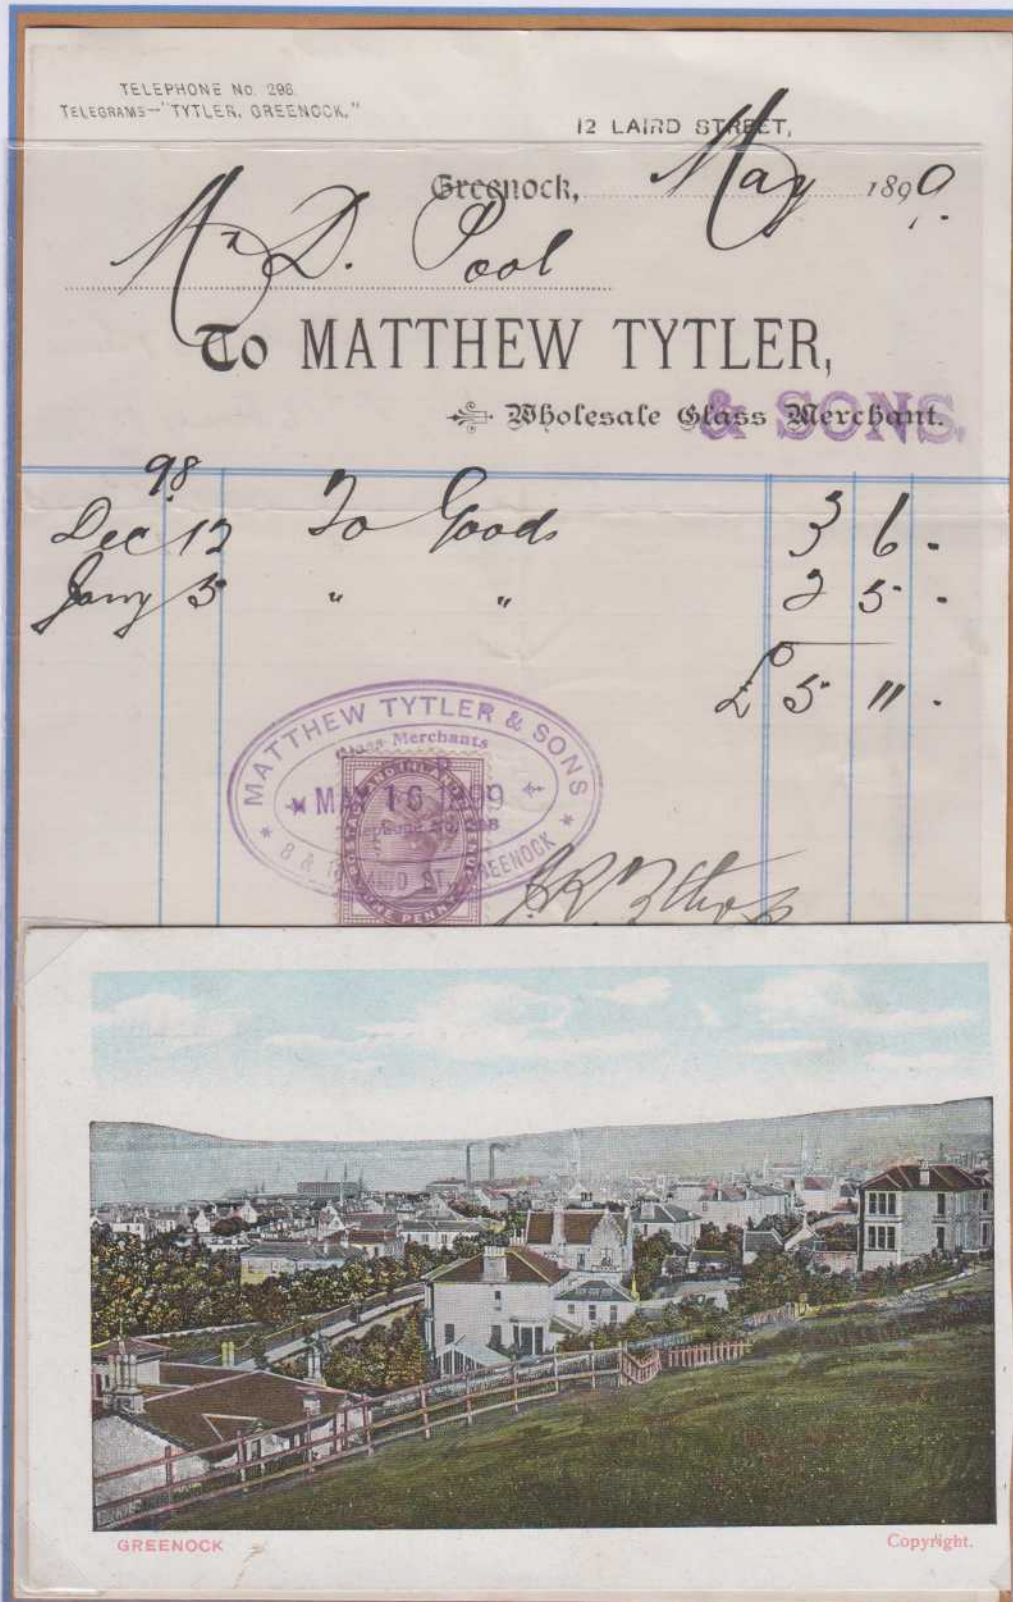 TELEPHONE No. 298.
TELEGRAMS—"TYTLER, GREENOCK."
12 LAIRD STREET,
Greenock, May 1899.
Mr D. Pool
To MATTHEW TYTLER,
& SONS.
Wholesale Glass Merchant.
98
Dec 12 To Goods 3 6 -
Jany 5 " " 2 5 -
£ 5 11 -
MATTHEW TYTLER & SONS
Glass Merchants
MAY 16 1899
Telephone No. 298
8 & LAIRD ST GREENOCK
POSTAGE AND INLAND REVENUE
ONE PENNY
GREENOCK
Copyright.